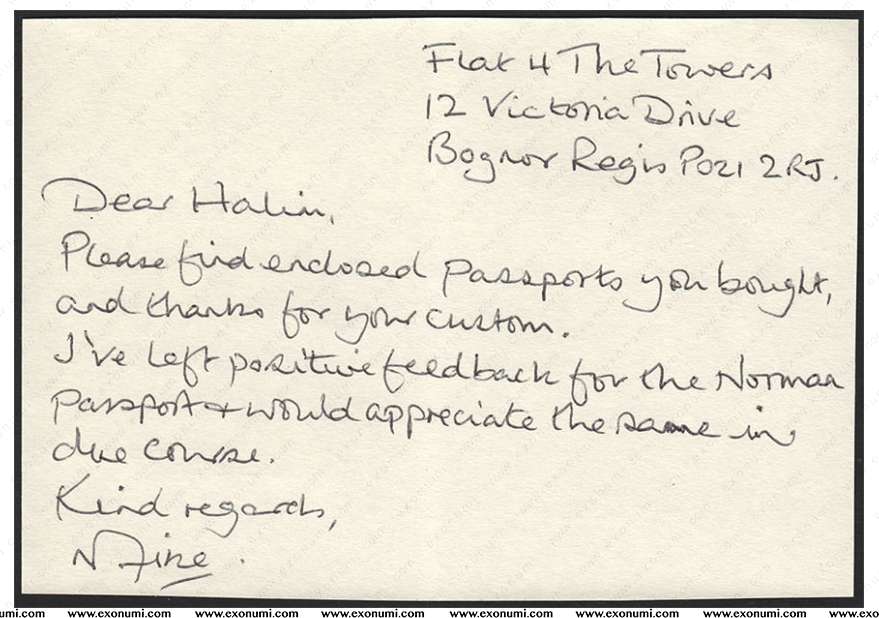 Flat 4 The Towers
12 Victoria Drive
Bognor Regis PO21 2RJ.
Dear Halim,
Please find enclosed passports you bought,
and thanks for your custom.
I've left positive feedback for the Norman
passport & would appreciate the same in
due course.
Kind regards,
N Fine.
umi.com www.exonumi.com www.exonumi.com www.exonumi.com www.exonumi.com www.exonumi.com www.exonumi.com www.exo